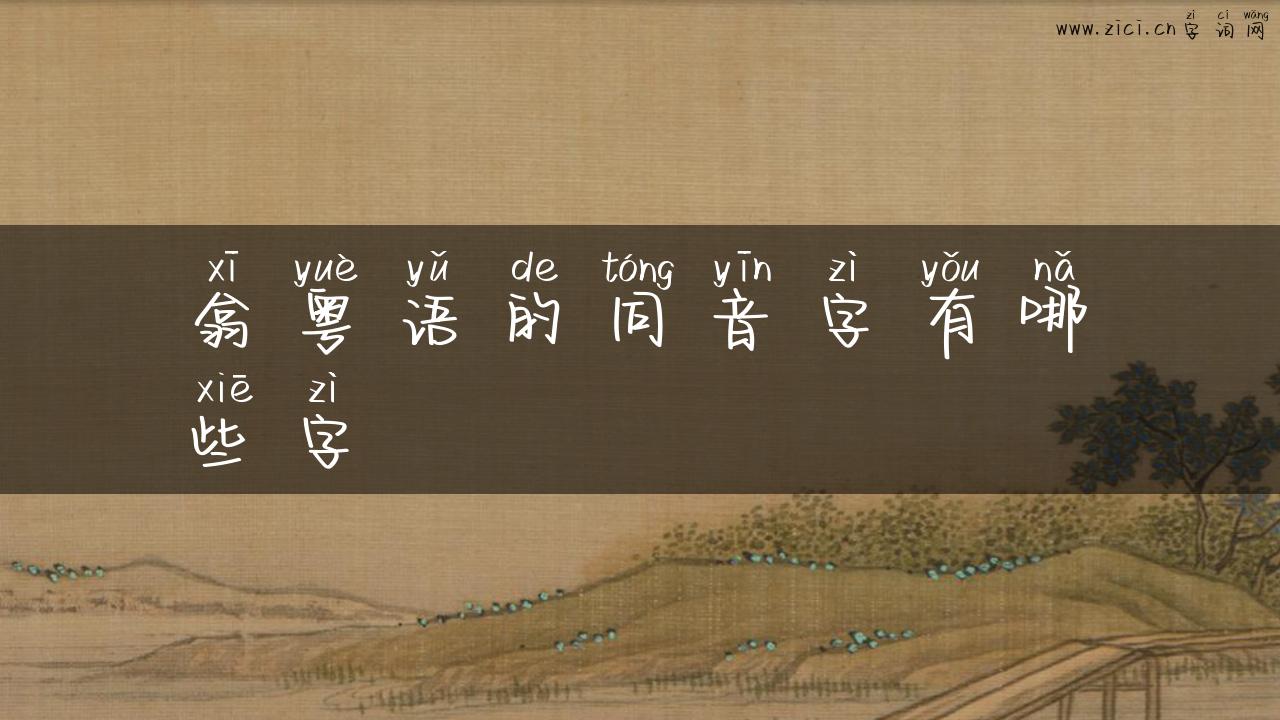 zì cí wǎng
www.zici.cn 字 词 网
xī yuè yǔ de tóng yīn zì yǒu nǎ
翕 粤 语 的 同 音 字 有 哪
xiē zì
些 字